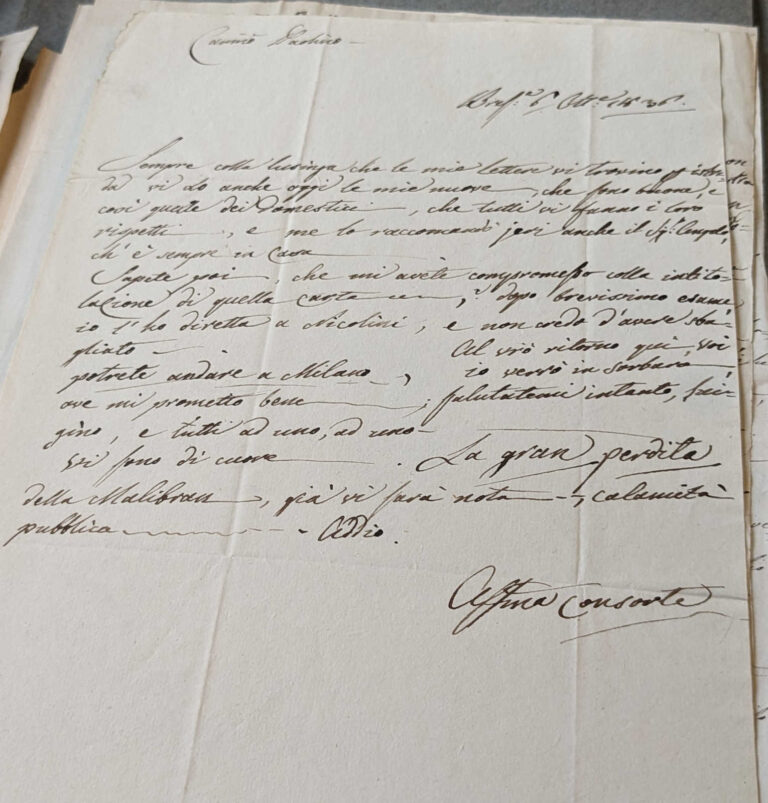 Carmo Paolino —
Bresc.a 6. Ott.e 1836.
Sempre colla lusinga che le mie lettere vi trovino
da vi do anche oggi le mie nuove, che sono buone, e
così quelle dei Domestici, che tutti vi fanno i loro
rispetti, e me lo raccomandò jeri anche il Sig.r
ch'è sempre in Casa
Sapete poi, che mi avete compromesso colla intito-
lazione di quella carta, dopo brevissimo esame
io l'ho diretta a Nicolini, e non credo d'avere sba-
gliato — Al vrõ ritorno qui, voi
potrete andare a Milano, io verrò in
ove mi prometto bene; salutatemi intanto,
gino, e tutti ad uno, ad uno —
vi sono di cuore. La gran perdita
della Malibran, già vi sarà nota —, calamità
pubblica — Addio.
Affma Consorte